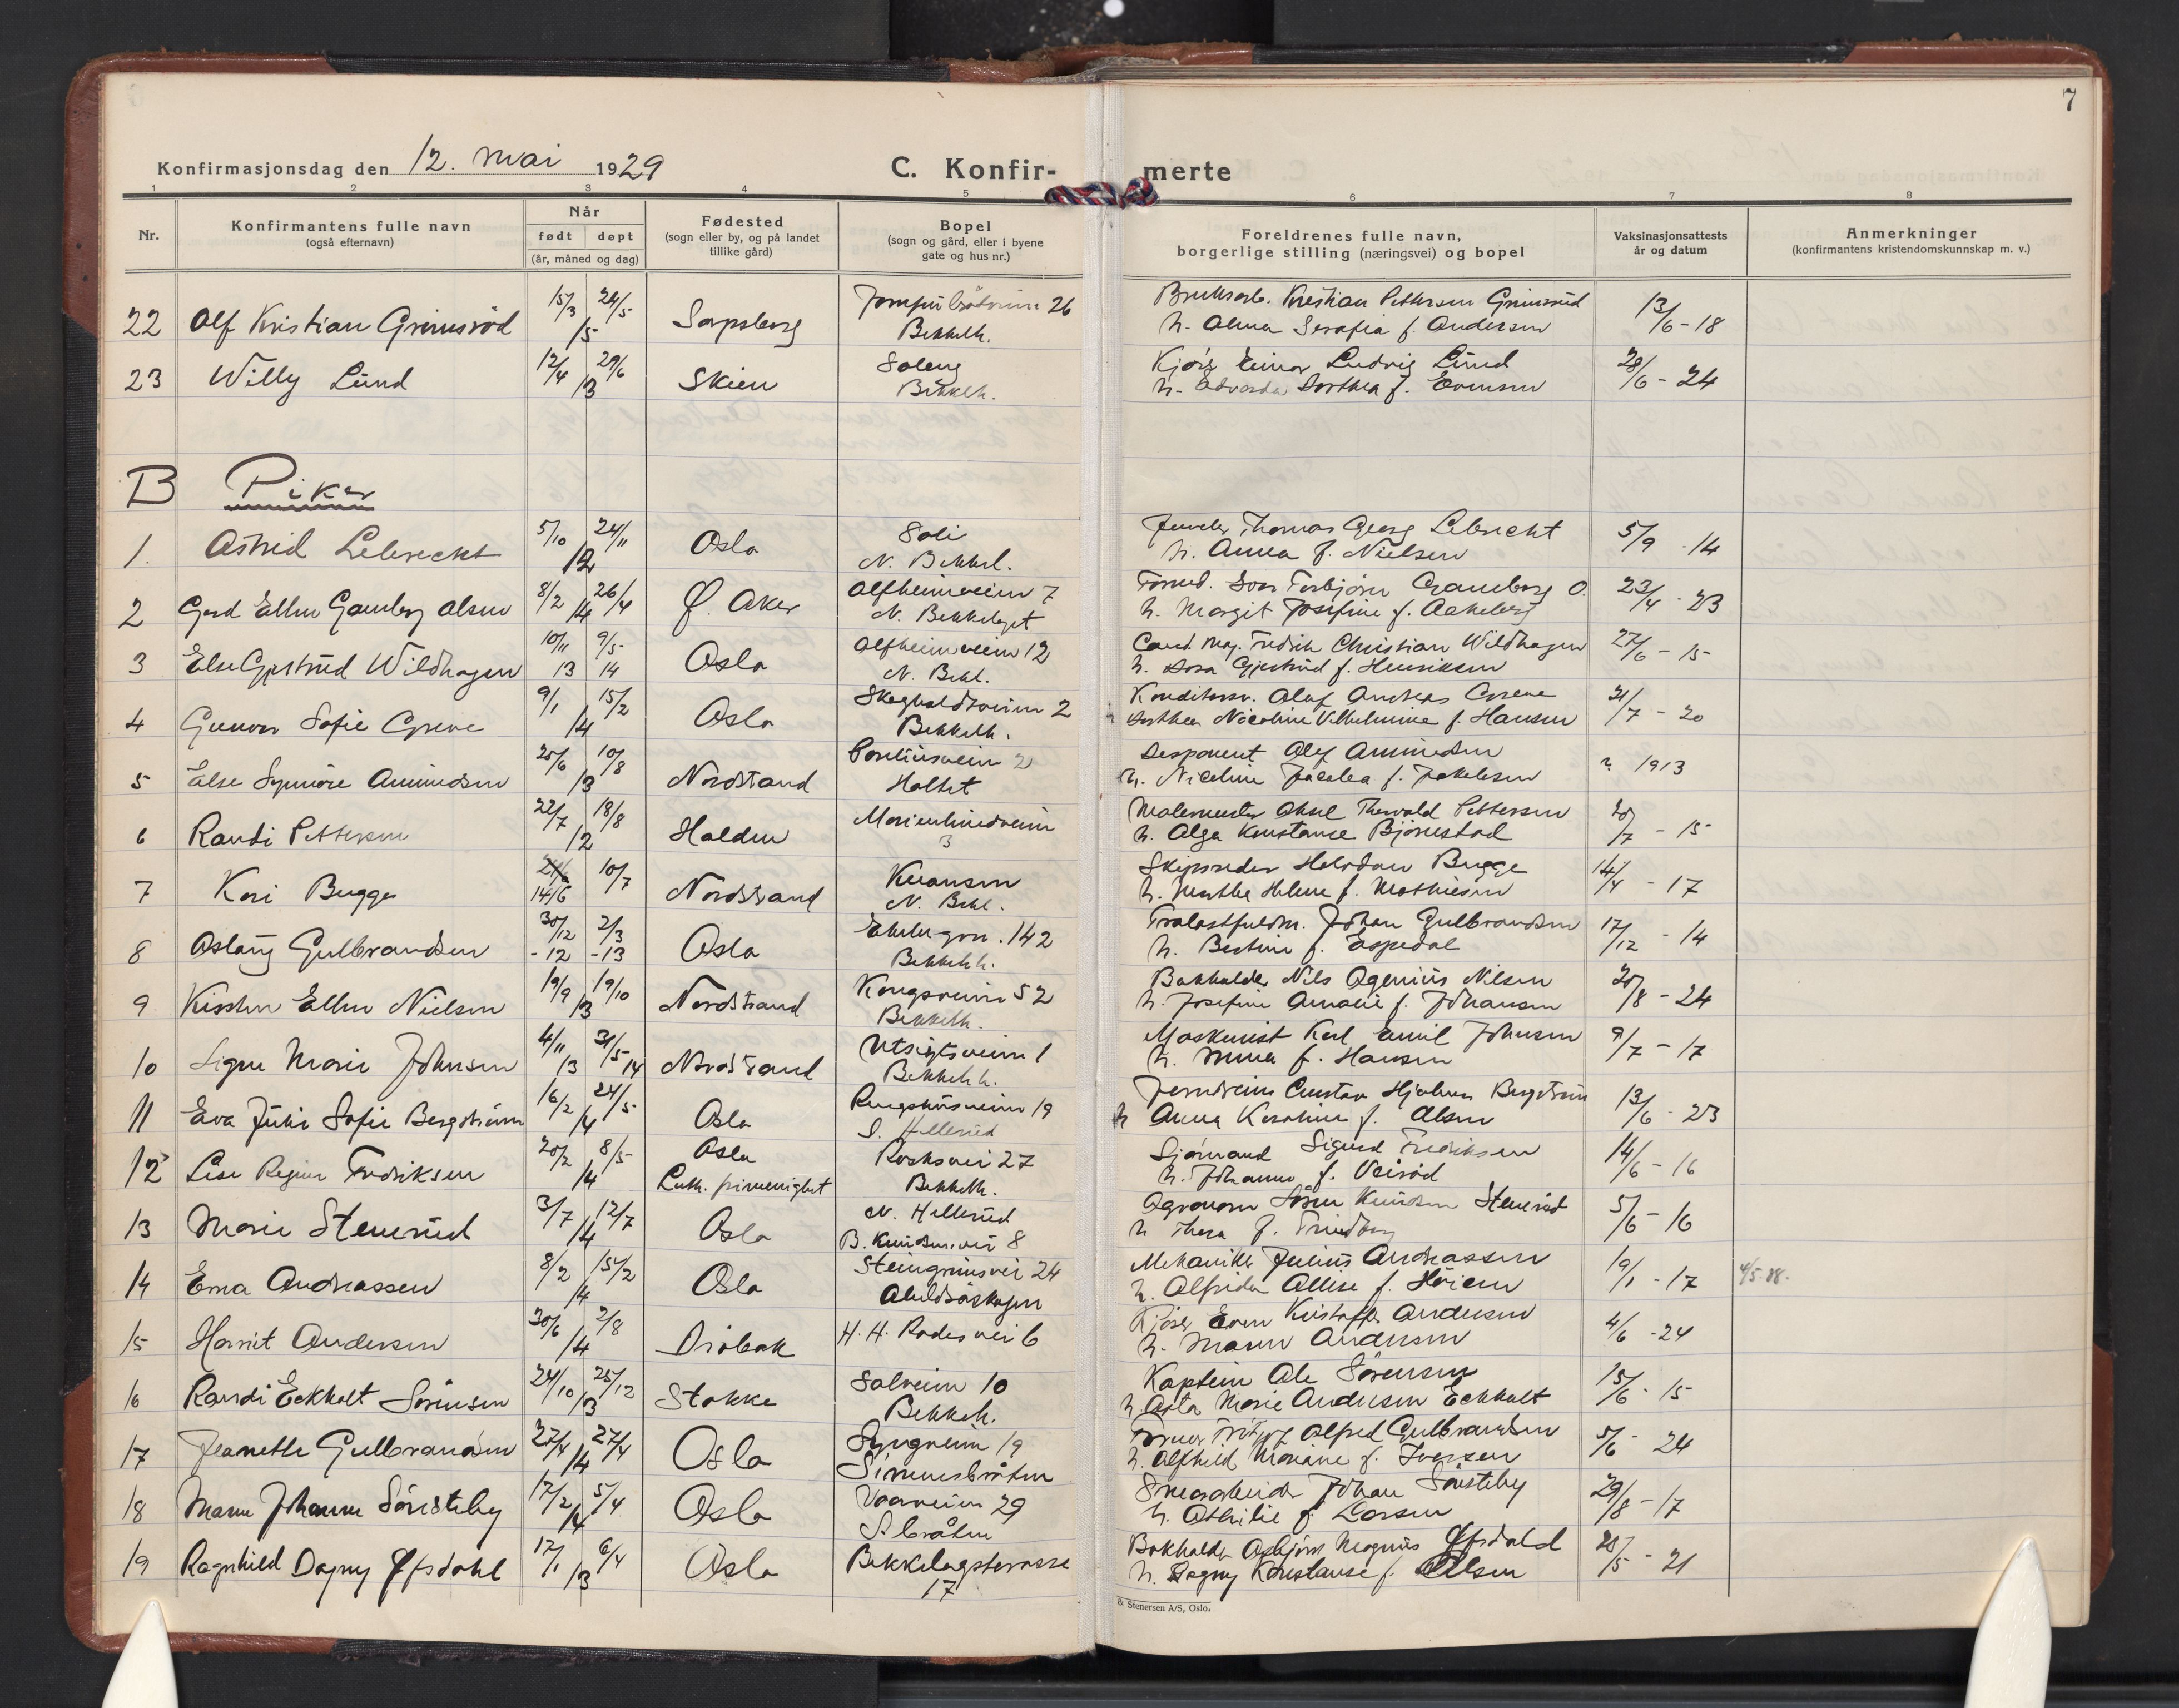 7
Konfirmasjonsdag den 12. mai 1929
C. Konfir-
merte
1 2 3 4 5 6 7 8
Nr.
Konfirmantens fulle navn
(også efternavn)
Når
født døpt
(år, måned og dag)
Fødested
(sogn eller by, og på landet
tillike gård)
Bopel
(sogn og gård, eller i byene
gate og hus nr.)
Foreldrenes fulle navn,
borgerlige stilling (næringsvei) og bopel
Vaksinasjonsattests
år og datum
Anmerkninger
(konfirmantens kristendomskunnskap m. v.)
15/3 24/5 26 Kristian Pettersen Grimsrud
22 Alf Kristian Grimsrød 15 Sarpsborg Bekkelh. h. Alma Serafia f. Andersen 13/6-18
12/4 29/6 Soleng Einar Ludvig Lund
23 Willy Lund 13 Skien Bekkelh. h. Edvarda Dorthea f. Evensen 28/6 - 24
B Piker
5/10 24/11 Soli Thomas Georg Lebrecht
1. Astrid Lebrecht 12 Oslo N. Bekkel. h. Anna f. Nielsen 5/9 - 14
8/2 26/4 Alfheimveien 7 Torbjørn Gamborg O.
2 Gerd Ellen Gamborg Olsen 14 Ø. Aker N. Bekkelaget h. Margit Josefine f. 23/4 - 23
10/11 9/5 Alfheimveien 12 Cand. Mag. Fredrik Christian Wildhagen
3 Else Gjertrud Wildhagen 13 14 Oslo N. Bekl. h. Dora Gjertrud f. Henriksen 27/6 - 15
9/1 15/2 2 Olaf Andreas Greve
4 Gunvor Sofie Greve 14 Oslo Bekkelh. h Dorthea Nicoline Vilhelmine f. Hansen 21/7 - 20
25/6 10/8 2 Disponent Olaf Amundsen
5 Else Synnøve Amundsen 13 Nordstrand Holtet h. Nicoline f. Jakobsen ? 1913
22/7 18/8 Marienlundveien Malermester Thorvald Pettersen
6 Randi Pettersen 12 Halden 3 h. Olga Konstanse Bjørnestad 20/7 - 15
10/7 Skipsreder Halvdan Bugge
7 Kari Bugge 14/6 Nordstrand N. Bekl. h. Helene f. Mathiesen 14/4 - 17
30/12 2/3 142 Johan Gulbrandsen
8 Aslaug Gulbrandsen -12 -13 Oslo Bekkelh. h. Bertine f. Espedal 17/12 - 14
19/9 19/10 Kongsveien 52 Bokholder Nils Nilsen
9 Kirsten Ellen Nielsen 13 Nordstrand Bekkelh. h. Josefine Amalie f. Johansen 20/8 - 24
4/11 31/5 Utsigtsveien 1 Maskinist Karl Emil Johnsen
10 Signe Marie Johnsen 13 14 Nordstrand Bekkelh. h. f. Hansen 9/7 - 17
16/2 24/5 19 Gustav Hjalmar Bergstrøm
11 Eva Sofie Bergstrøm 14 Oslo S. Hellerud h Anna Karoline f. Olsen 13/6 - 23
20/2 8/5 Oslo 27 Sjømand Sigurd Fredriksen
12 Fredriksen 14 Luth. frimenighet Bekkelh. h. Johanne f. 14/6 - 16
3/7 12/7 N. Hellerud Agronom Søren Knudsen Stenerud
13 Marie Stenerud 14 Oslo B. 8 h Thora f. 5/6 - 16
8/2 15/2 24 Mekaniker Julius Andreassen
14 Erna Andreassen 14 Oslo h. Alfrida f. 19/1 - 17 4/5-38.
30/6 2/8 Kristoffer Andersen
15 Harriet Andersen 14 Drøbak H. H. Rodes vei 6 h. Maren Andersen 4/6 - 24
24/10 25/12 Solveien 10 Kaptein Ole Sørensen
16 Randi Eckholt Sørensen 13 Stokke Bekkelh. h. Asta Marie Andersen Eckholt 15/6 - 15
27/4 27/4 19 Fritjof Alfred Gulbrandsen
17 Jeanette Gulbrandsen 14 Oslo Simensbråten h. Alfhild Mariane f. Iversen 5/6 - 24
17/2 5/4 Vaarveien 29 Johan Sønsteby
18 Johanne Sønsteby 14 Oslo S. bråten h. f. Larsen 29/8 - 17
17/1 6/4 Bekkelagsterrasse Bokholder Asbjørn Magnus Øfsdahl
19 Ragnhild Dagny Øfsdahl 13 Oslo 17 h. Dagny Konstanse f. Olsen 25/5 - 21
& Stenersen A/S, Oslo.